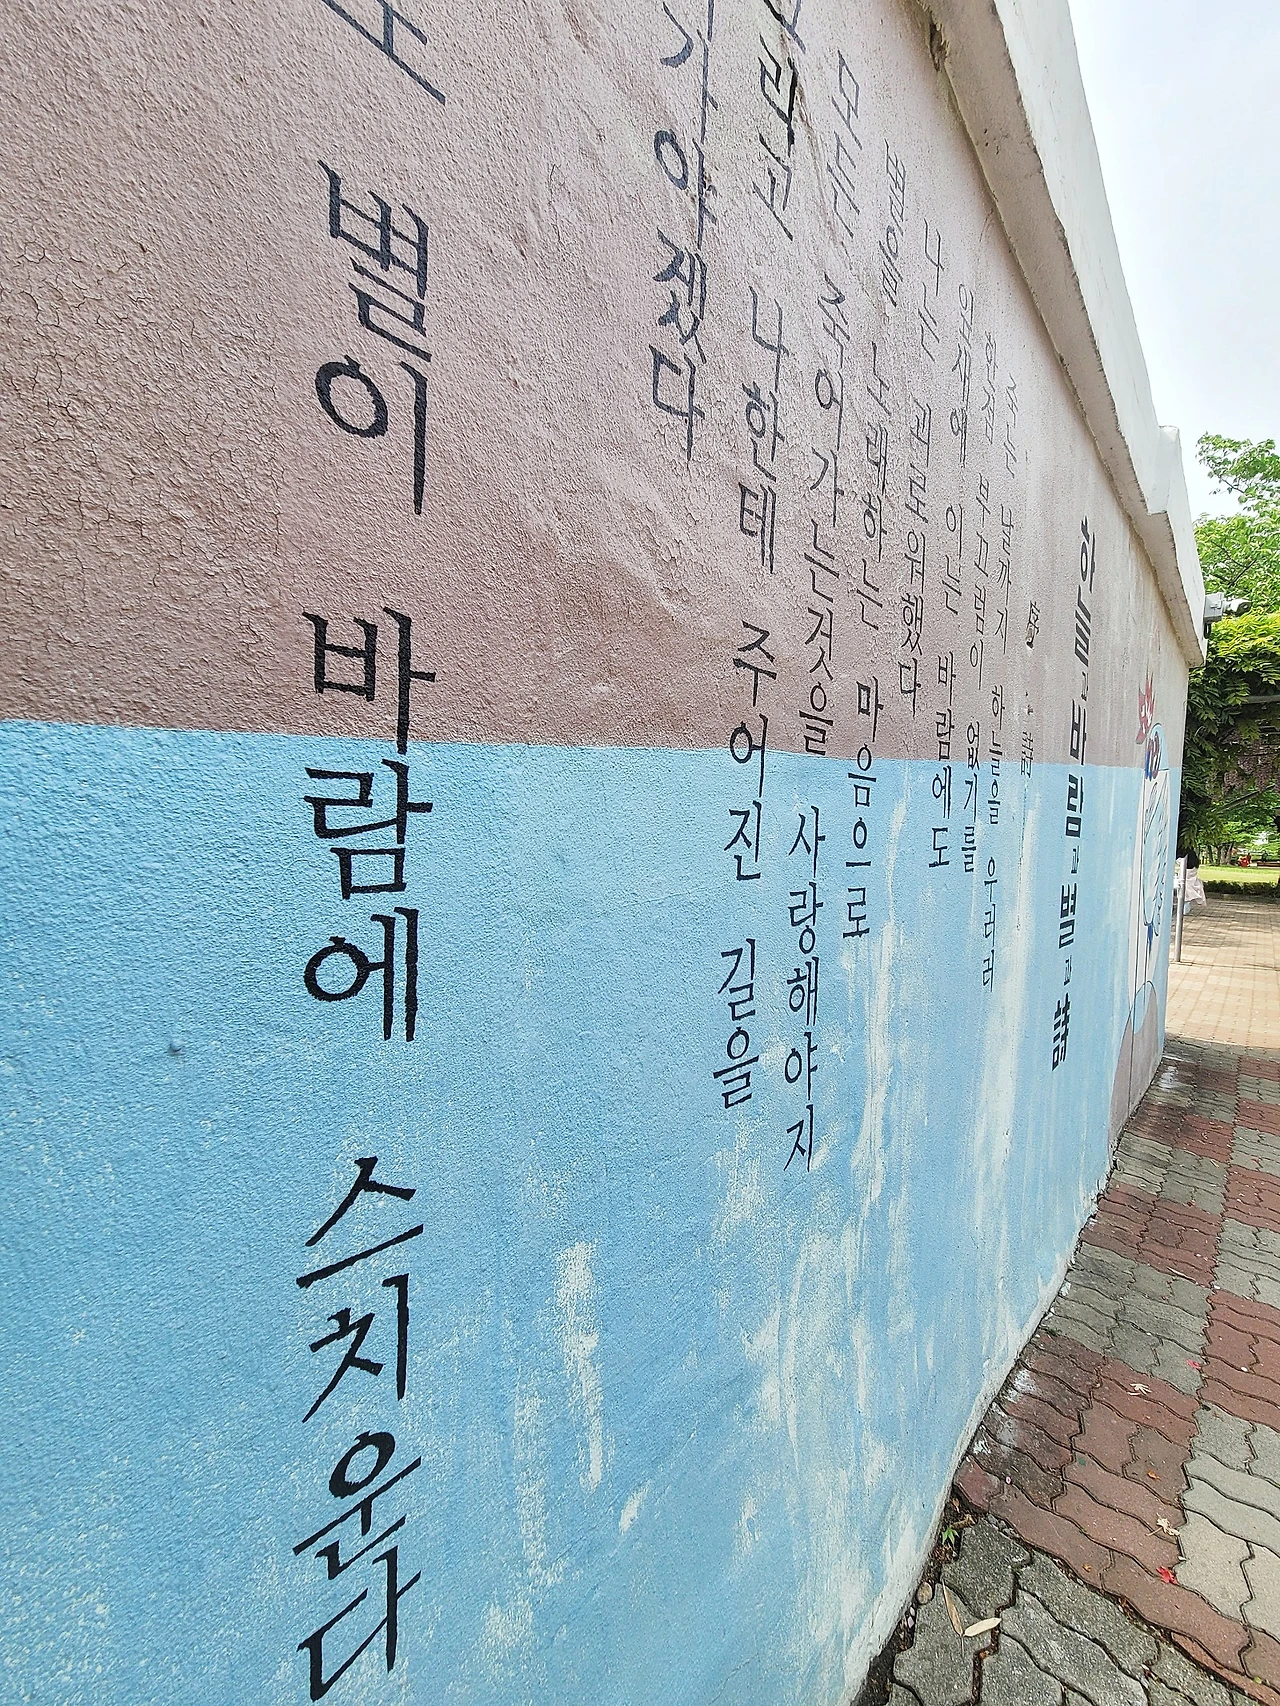 하늘과 바람과 별과 詩
序 · 詩
죽는 날까지 하늘을 우러러
한점 부끄럼이 없기를
잎새에 이는 바람에도
나는 괴로워했다
별을 노래하는 마음으로
모든 죽어가는것을 사랑해야지
그리고 나한테 주어진 길을
가야겠다
별이 바람에 스치운다